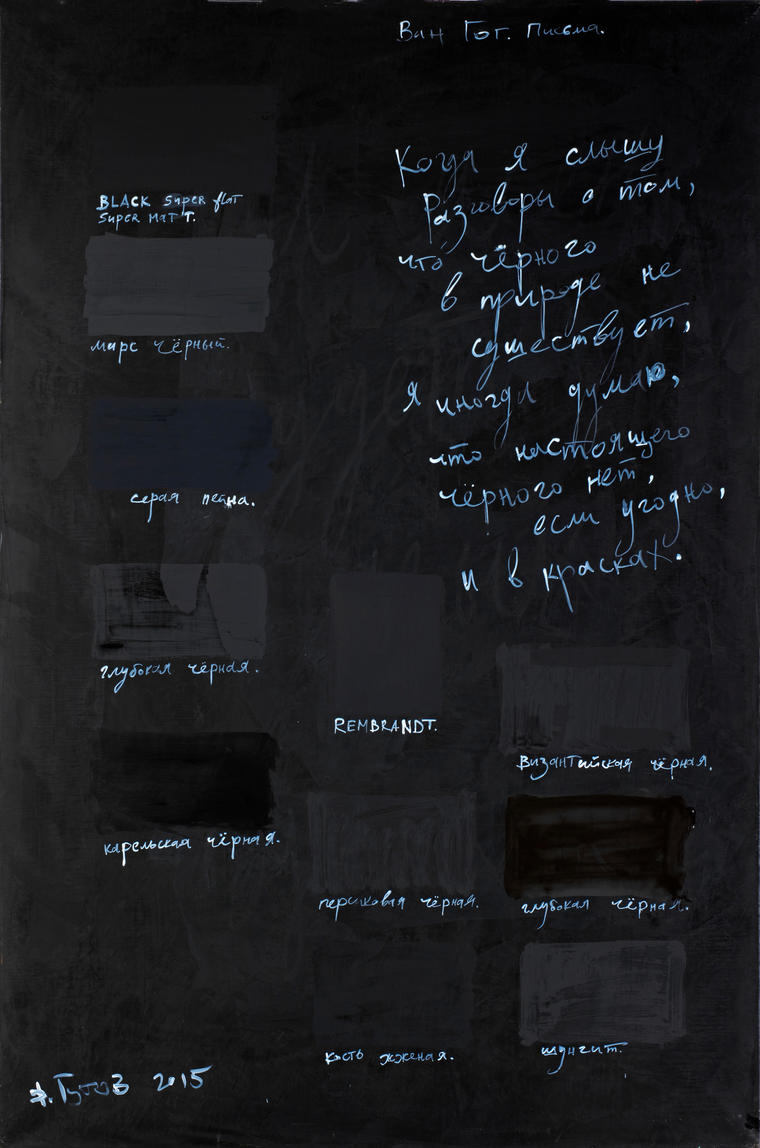 Ван Гог. Письма.
Когда я слышу
разговоры о том,
что чёрного
в природе не
существует,
я иногда думаю,
что настоящего
чёрного нет,
если угодно,
и в красках.
BLACK super flat
super matt.
марс чёрный.
серая пейна.
глубокая чёрная.
карельская чёрная.
REMBRANDT.
Византийская чёрная.
персиковая чёрная.
глубокая чёрная.
кость жжёная.
шунгит.
Д. Гутов 2015